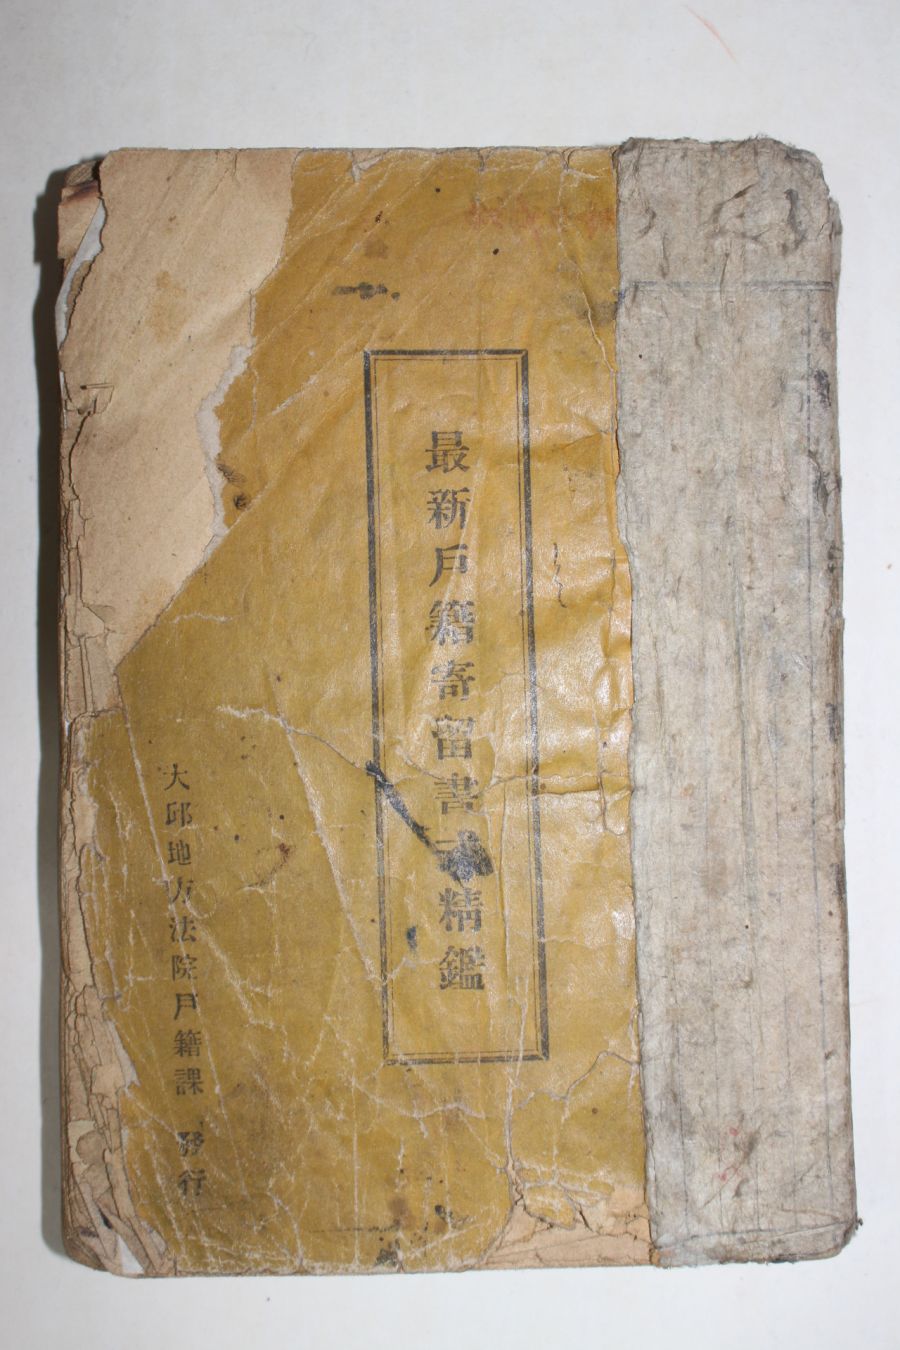 最新戶籍寄留書式精鑑
大邱地方法院戶籍課 發行